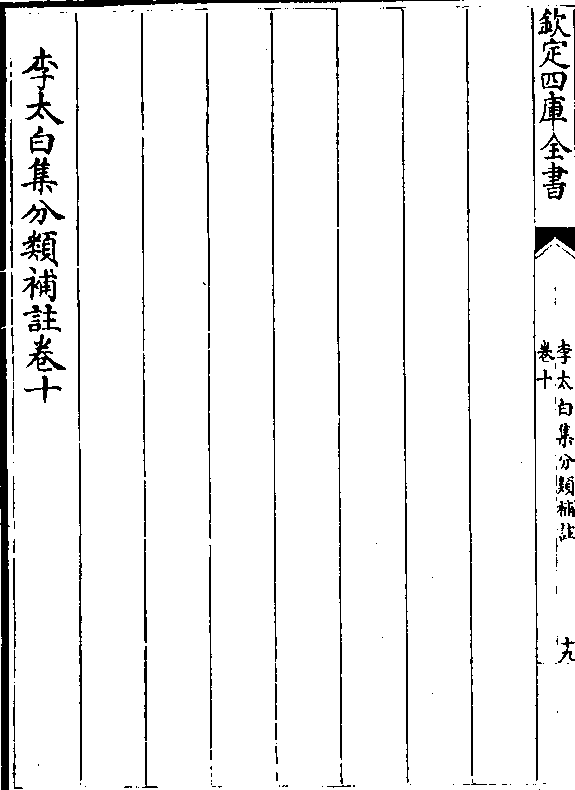 欽定四庫全書
李太白集分類補註
卷十
十九
李太白集分類補註卷十